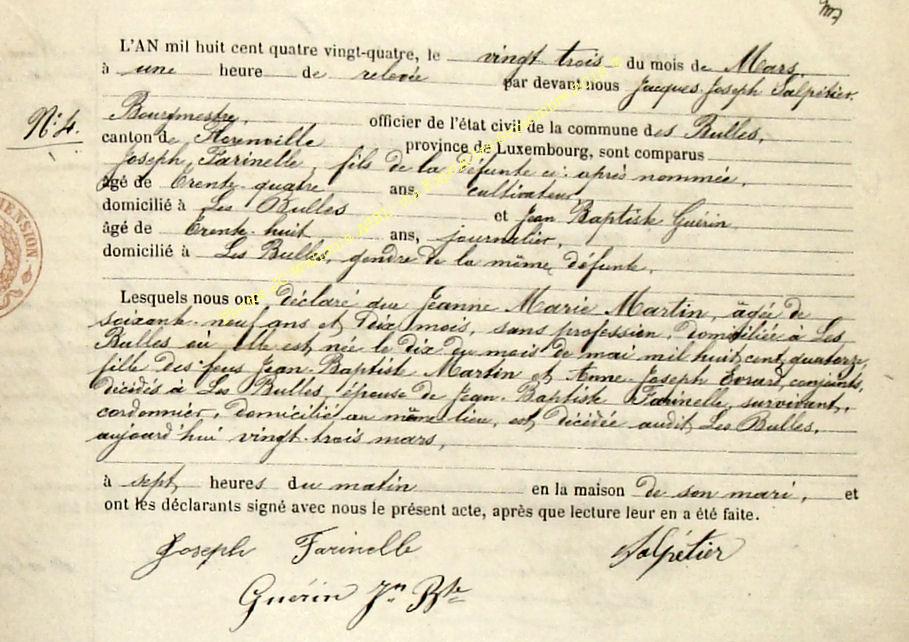 L'AN mil huit cent quatre vingt-quatre, le vingt trois du mois de Mars,
à une heure de relevée par devant nous Jacques Joseph Salpétier,
Bourgmestre, officier de l'état civil de la commune des Bulles,
N°. 4.
canton de Florenville province de Luxembourg, sont comparus
Joseph Farinelle, fils de la défunte ci-après nommée,
âgé de trente-quatre ans, cultivateur
domicilié à Les Bulles et Jean Baptiste Guérin
âgé de trente-huit ans, journalier,
domicilié à Les Bulles, gendre de la même défunte.
Lesquels nous ont déclaré que Jeanne Marie Martin, âgée de
soixante-neuf ans et dix mois, sans profession, domiciliée à Les
Bulles où elle est née le dix du mois de mai mil huit cent quatorze,
fille des feus Jean-Baptiste Martin et Anne-Joseph Evrard, conjoints,
décédés à Les Bulles, épouse de Jean-Baptiste Farinelle, survivant,
cordonnier, domicilié au même lieu, est décédée audit Les Bulles,
aujourd'hui vingt-trois mars,
à sept heures du matin en la maison de son mari, et
ont les déclarants signé avec nous le présent acte, après que lecture leur en a été faite.
Joseph Farinelle Salpétier
Guérin Jn Bte